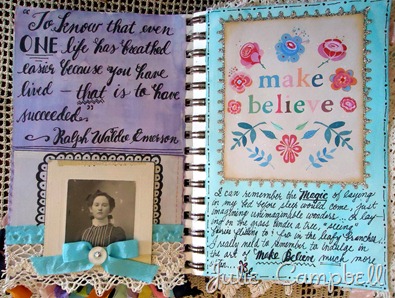 "To know that even
ONE life has breathed
easier because you have
lived — that is to have
succeeded."
~ Ralph Waldo Emerson
make
believe
I can remember the Magic of laying
in my bed before sleep would come, just
imagining unimaginable wonders... Or lay-
ing on the grass under a tree, "seeing"
faries flitting to & fro in the leafy branches.
I really need to remember to indulge in
the art of "Make Believe" much more
Julie Campbell